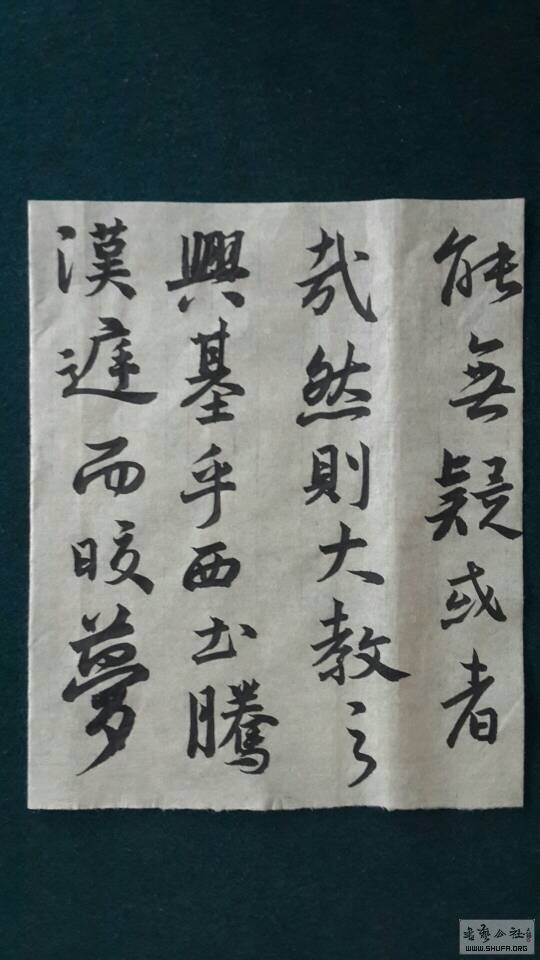 能無疑或者
哉然則大教之
興基乎西土騰
漢庭而晈夢
书艺公社
WWW.SHUFA.ORG